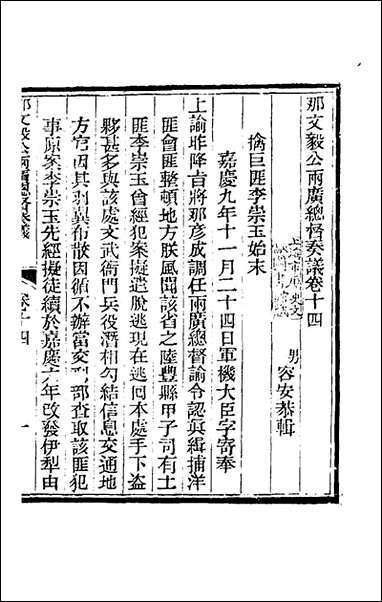 那文毅公兩廣總督奏議卷十四
男容安恭輯
擒巨匪李崇玉始末
嘉慶九年十一月二十四日軍機大臣字寄奉
上諭昨降旨將那彥成調任兩廣總督諭令認真緝捕洋
匪會匪整頓地方朕風聞該省之陸豐縣甲子司有土
匪李崇玉曾經犯案擬遣脫逃現在逃回本處手下盜
夥甚多與該處文武衙門兵役潛相勾結信息交通地
方官因其羽翼布散因循不辦當交刑部查取該匪犯
事原案李崇玉先經擬徒續於嘉慶六年改發伊犁由
那文毅公兩廣總督奏議
卷十四
一